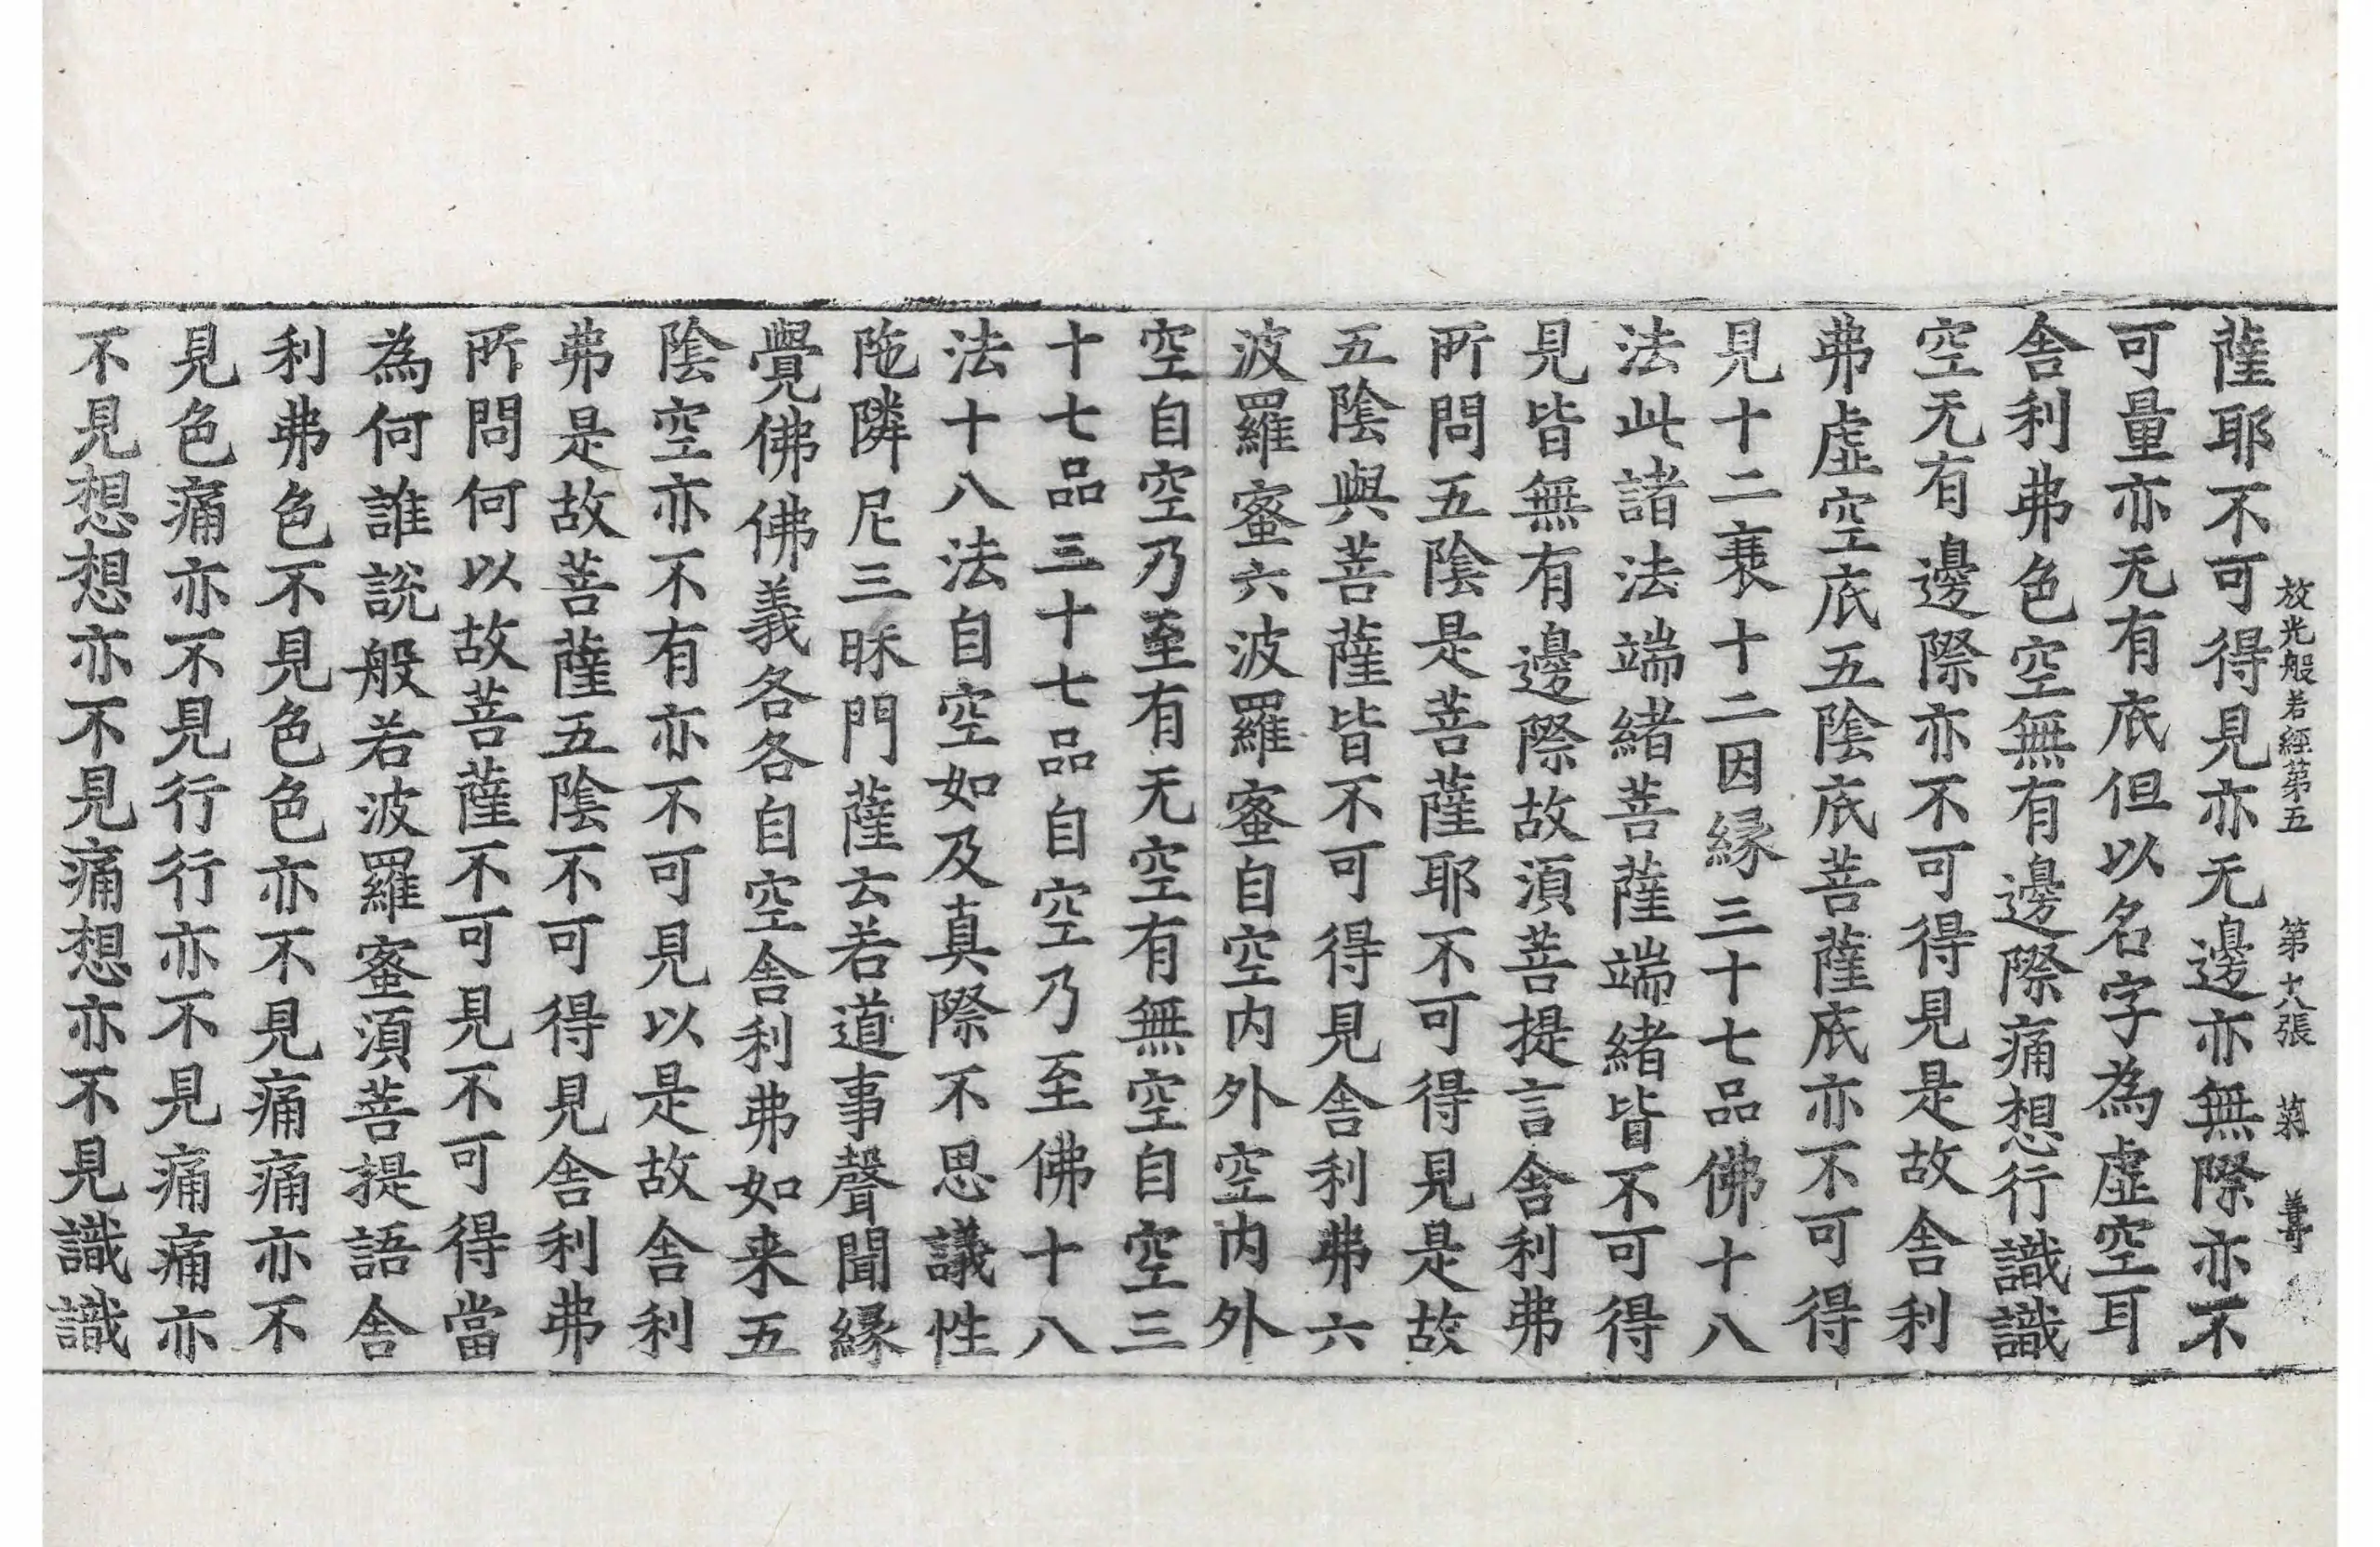 放光般若經第五 第十八張 菜 善
薩耶不可得見亦无邊亦無際亦不
可量亦无有底但以名字為虛空耳
舍利弗色空無有邊際痛想行識識
空无有邊際亦不可得見是故舍利
弗虛空底五陰底菩薩底亦不可得
見十二衰十二因緣三十七品佛十八
法此諸法端緒菩薩端緒皆不可得
見皆無有邊際故須菩提言舍利弗
所問五陰是菩薩耶不可得見是故
五陰與菩薩皆不可得見舍利弗六
波羅蜜六波羅蜜自空内外空内外
空自空乃至有无空有無空自空三
十七品三十七品自空乃至佛十八
法十八法自空如及真際不思議性
陁隣尼三昧門薩云若道事聲聞緣
覺佛佛義各各自空舍利弗如来五
陰空亦不有亦不可見以是故舍利
弗是故菩薩五陰不可得見舍利弗
所問何以故菩薩不可見不可得當
為何誰說般若波羅蜜須菩提語舍
利弗色不見色色亦不見痛痛亦不
見色痛亦不見行行亦不見痛痛亦
不見想想亦不見痛想亦不見識識